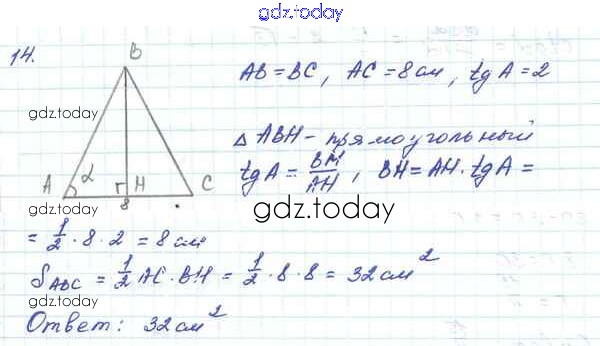 gdz.today
14.
B
A α H C
8
AB = BC, AC = 8 см, tg A = 2
gdz.today
△ ABH - прямоугольный
tg A = BH/AH, BH = AH · tg A =
gdz.today
= 1/2 · 8 · 2 = 8 см
S ABC = 1/2 AC · BH = 1/2 · 8 · 8 = 32 см²
gdz.today
Ответ: 32 см²